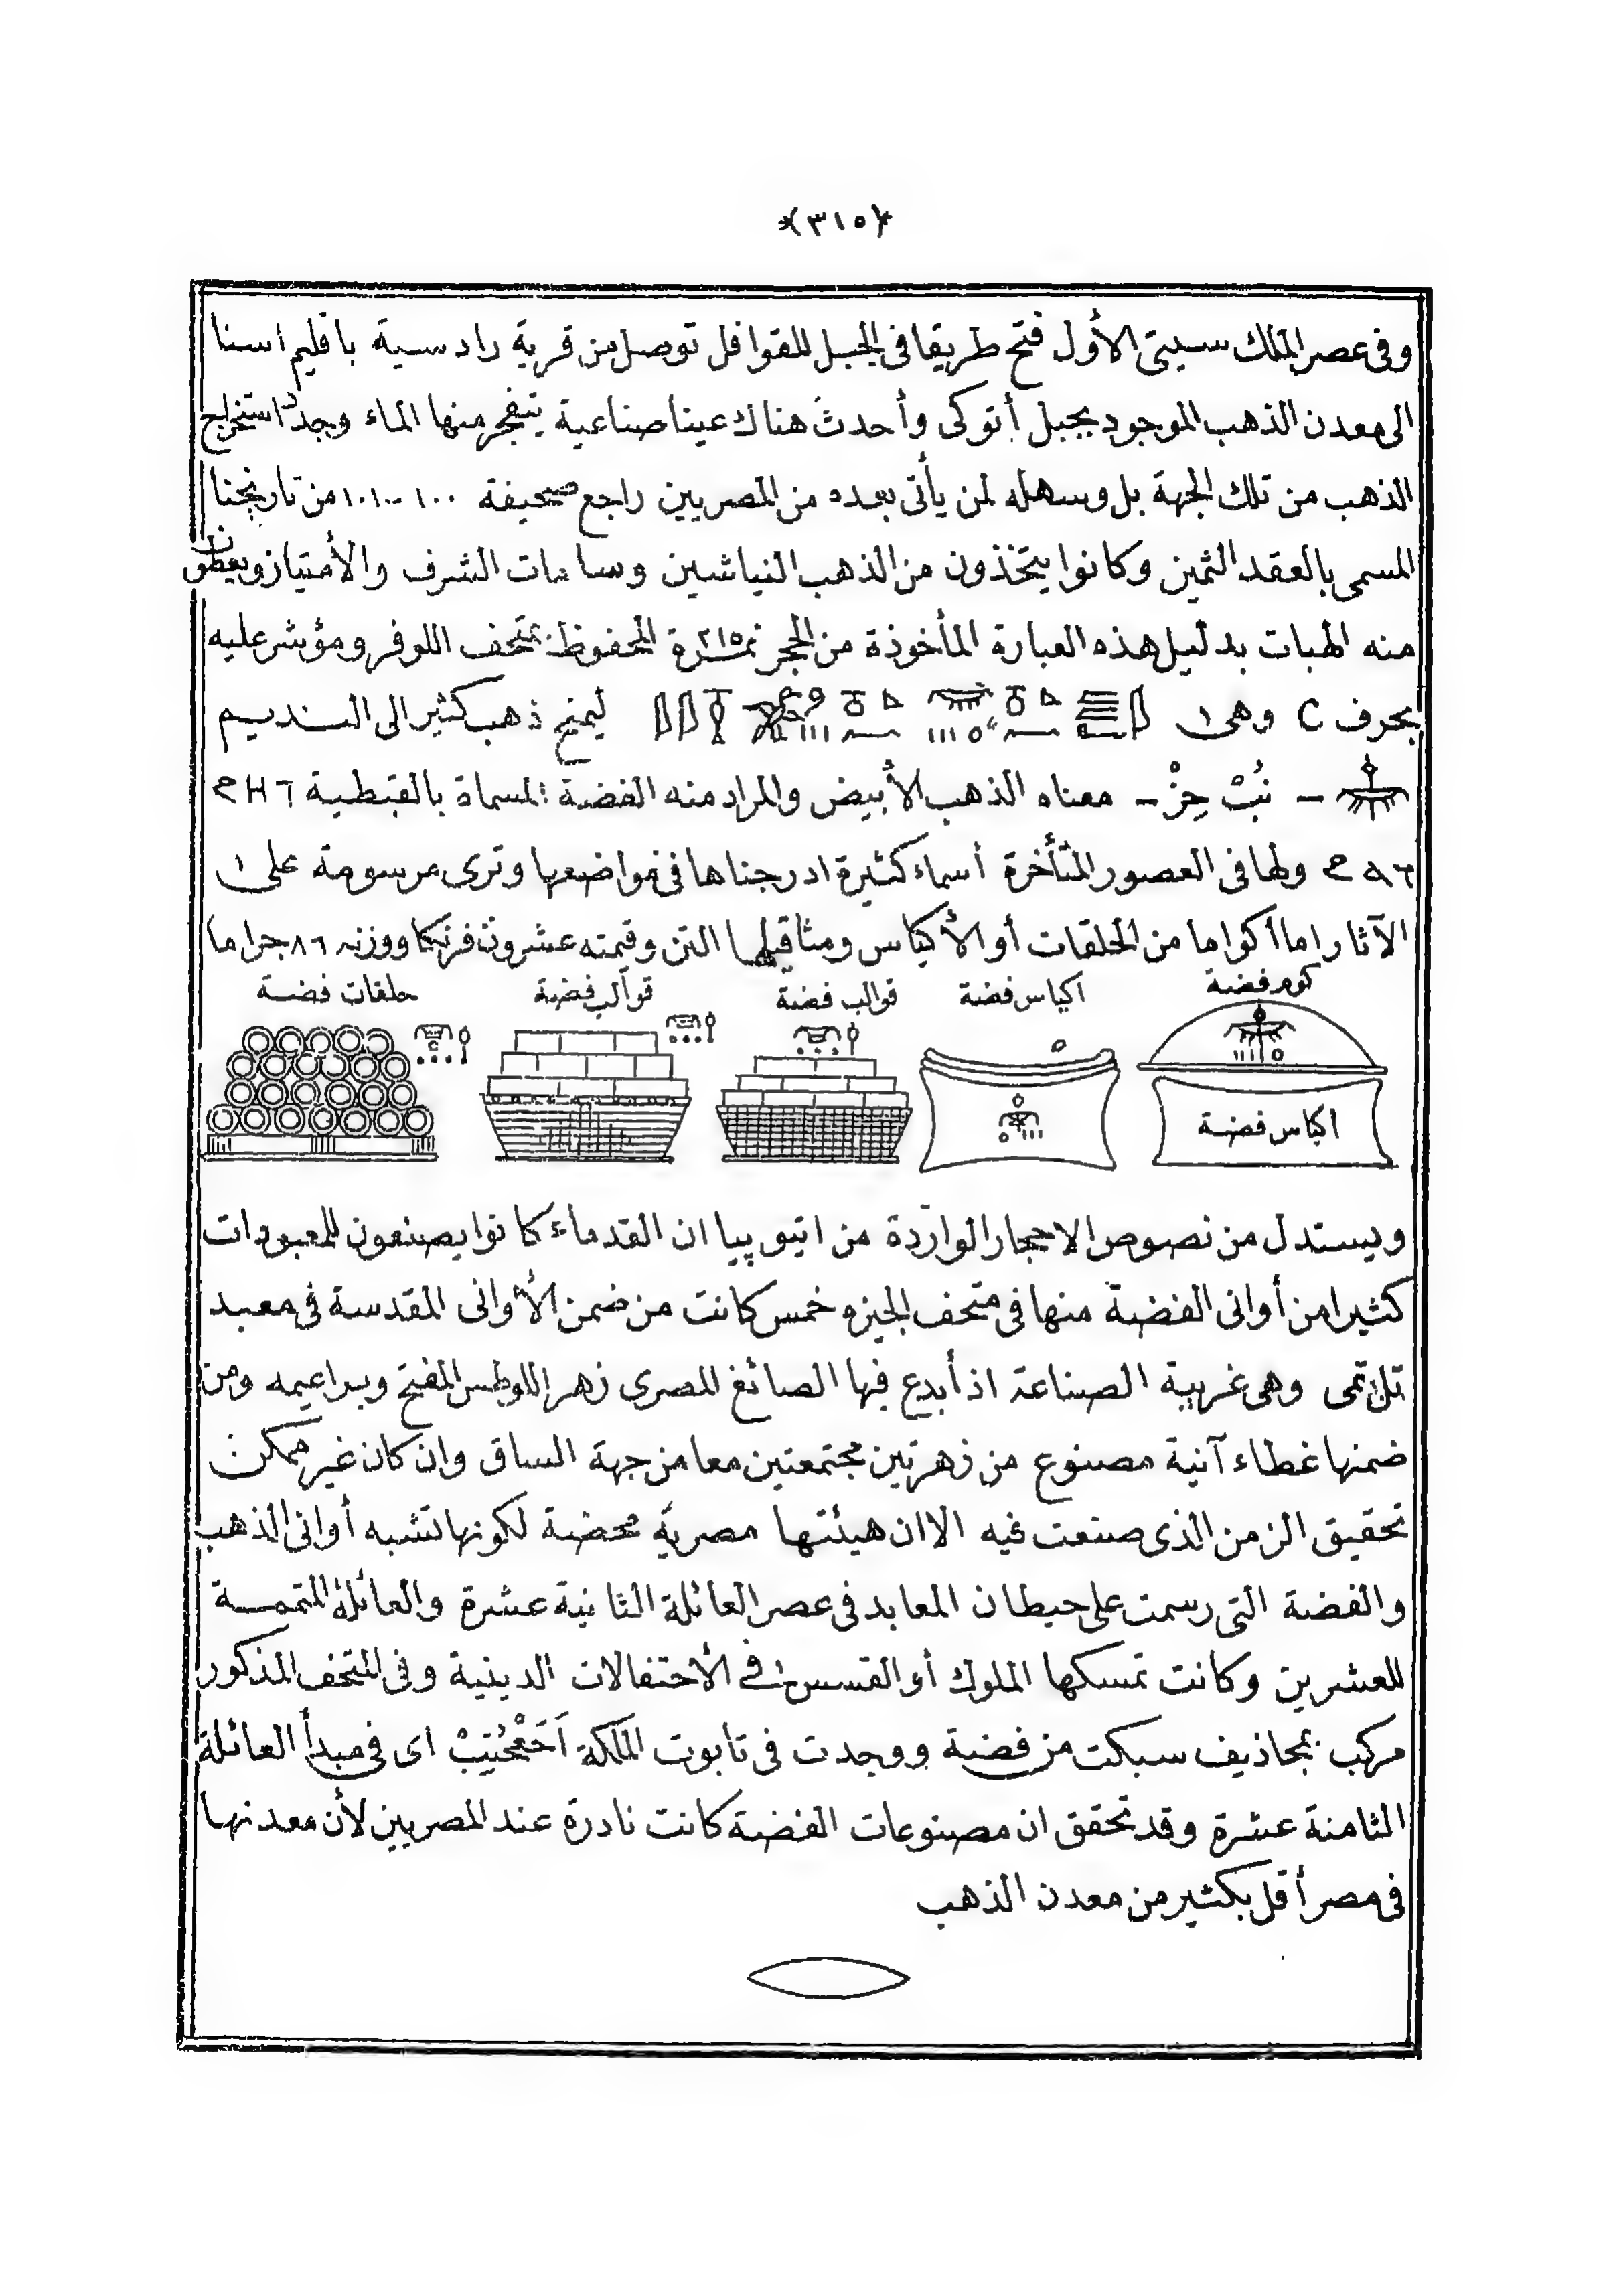 *(٣١٥)*
وفى عصر الملك سيتى الأول فتح طريقا فى الجبل للقوافل توصل من قرية رادسية باقليم اسنا
الى معدن الذهب الموجود بجبل أتوكى وأحدث هناك عينا صناعية يتفجر منها الماء وجدد استخراج
الذهب من تلك الجهة بل وسهله لمن يأتى بعده من المصريين راجع صحيفة ١٠٠-١٠١ من تاريخنا
المسمى بالعقد الثمين وكانوا يتخذون من الذهب النياشين وسامات الشرف والأمتياز ويعطون
منه الهبات بدليل هذه العبارة المأخوذة من الحجر نمرة ٢١٥ المحفوظ بمتحف اللوفر ومؤشر عليه
بحرف C وهى ليمنح ذهب كثير الى النديم
– نُبْ حِزْ – معناه الذهب الأبيض والمراد منه الفضة المسماة بالقبطية
ولها فى العصور المتأخرة أسماء كثيرة ادرجناها فى مواضعها وترى مرسومة على
الآثار اما أكواما من الحلقات أو الأكياس ومثاقيلها التن وقيمته عشرون فرنكا ووزنه ٨٦ جراما
كوم فضة اكياس فضة قوالب فضة قوالب فضة حلقات فضة
اكياس فضة
ويستدل من نصوص الاحجار الواردة من اتيوپيا ان القدماء كانوا يصنعون للمعبودات
كثيرا من أوانى الفضة منها فى متحف الجيزه خمس كانت من ضمن الأوانى المقدسة فى معبد
تل تمى وهى غريبة الصناعة اذ أبدع فيها الصائغ المصرى زهر اللوطس المفتح وبراعيمه ومن
ضمنها غطاء آنية مصنوع من زهرتين مجتمعتين معا من جهة الساق وان كان غير ممكن
تحقيق الزمن الذى صنعت فيه الا ان هيئتها مصرية محضة لكونها تشبه أوانى الذهب
والفضة التى رسمت على حيطان المعابد فى عصر العائلة الثانية عشرة والعائلة المتممة
للعشرين وكانت تمسكها الملوك أو القسس فى الأحتفالات الدينية وفى المتحف المذكور
مركب بمجاذيف سبكت من فضة ووجدت فى تابوت الملكة اى فى مبدأ العائلة
الثامنة عشرة وقد تحقق ان مصنوعات الفضة كانت نادرة عند المصريين لأن معدنها
فى مصر أقل بكثير من معدن الذهب